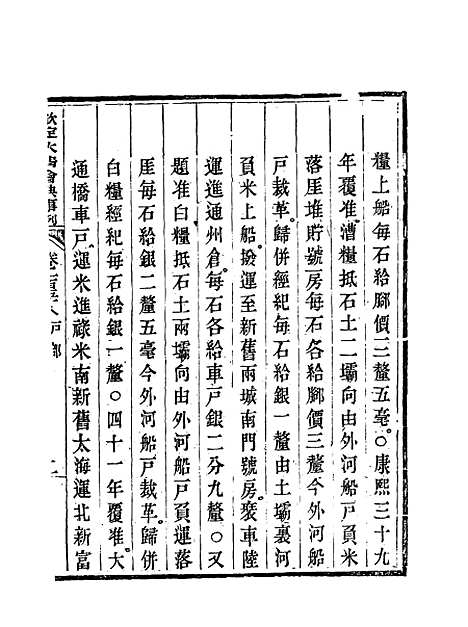 糧上船每石給腳價三釐五毫○康熙三十九
年覆准漕糧抵石土二壩向由外河船戶負米
落厓堆貯號房每石各給腳價三釐今外河船
戶裁革歸併經紀每石給銀一釐由土壩裏河
負米上船撥運至新舊兩城南門號房袞車陸
運進通州倉每石各給車戶銀二分九釐○又
題准白糧抵石土兩壩向由外河船戶負運落
厓每石給銀二釐五毫今外河船戶裁革歸併
白糧經紀每石給銀一釐○四十一年覆准大
通橋車戶運米進祿米南新舊太海運北新富
欽定大清會典事例 卷 戶部